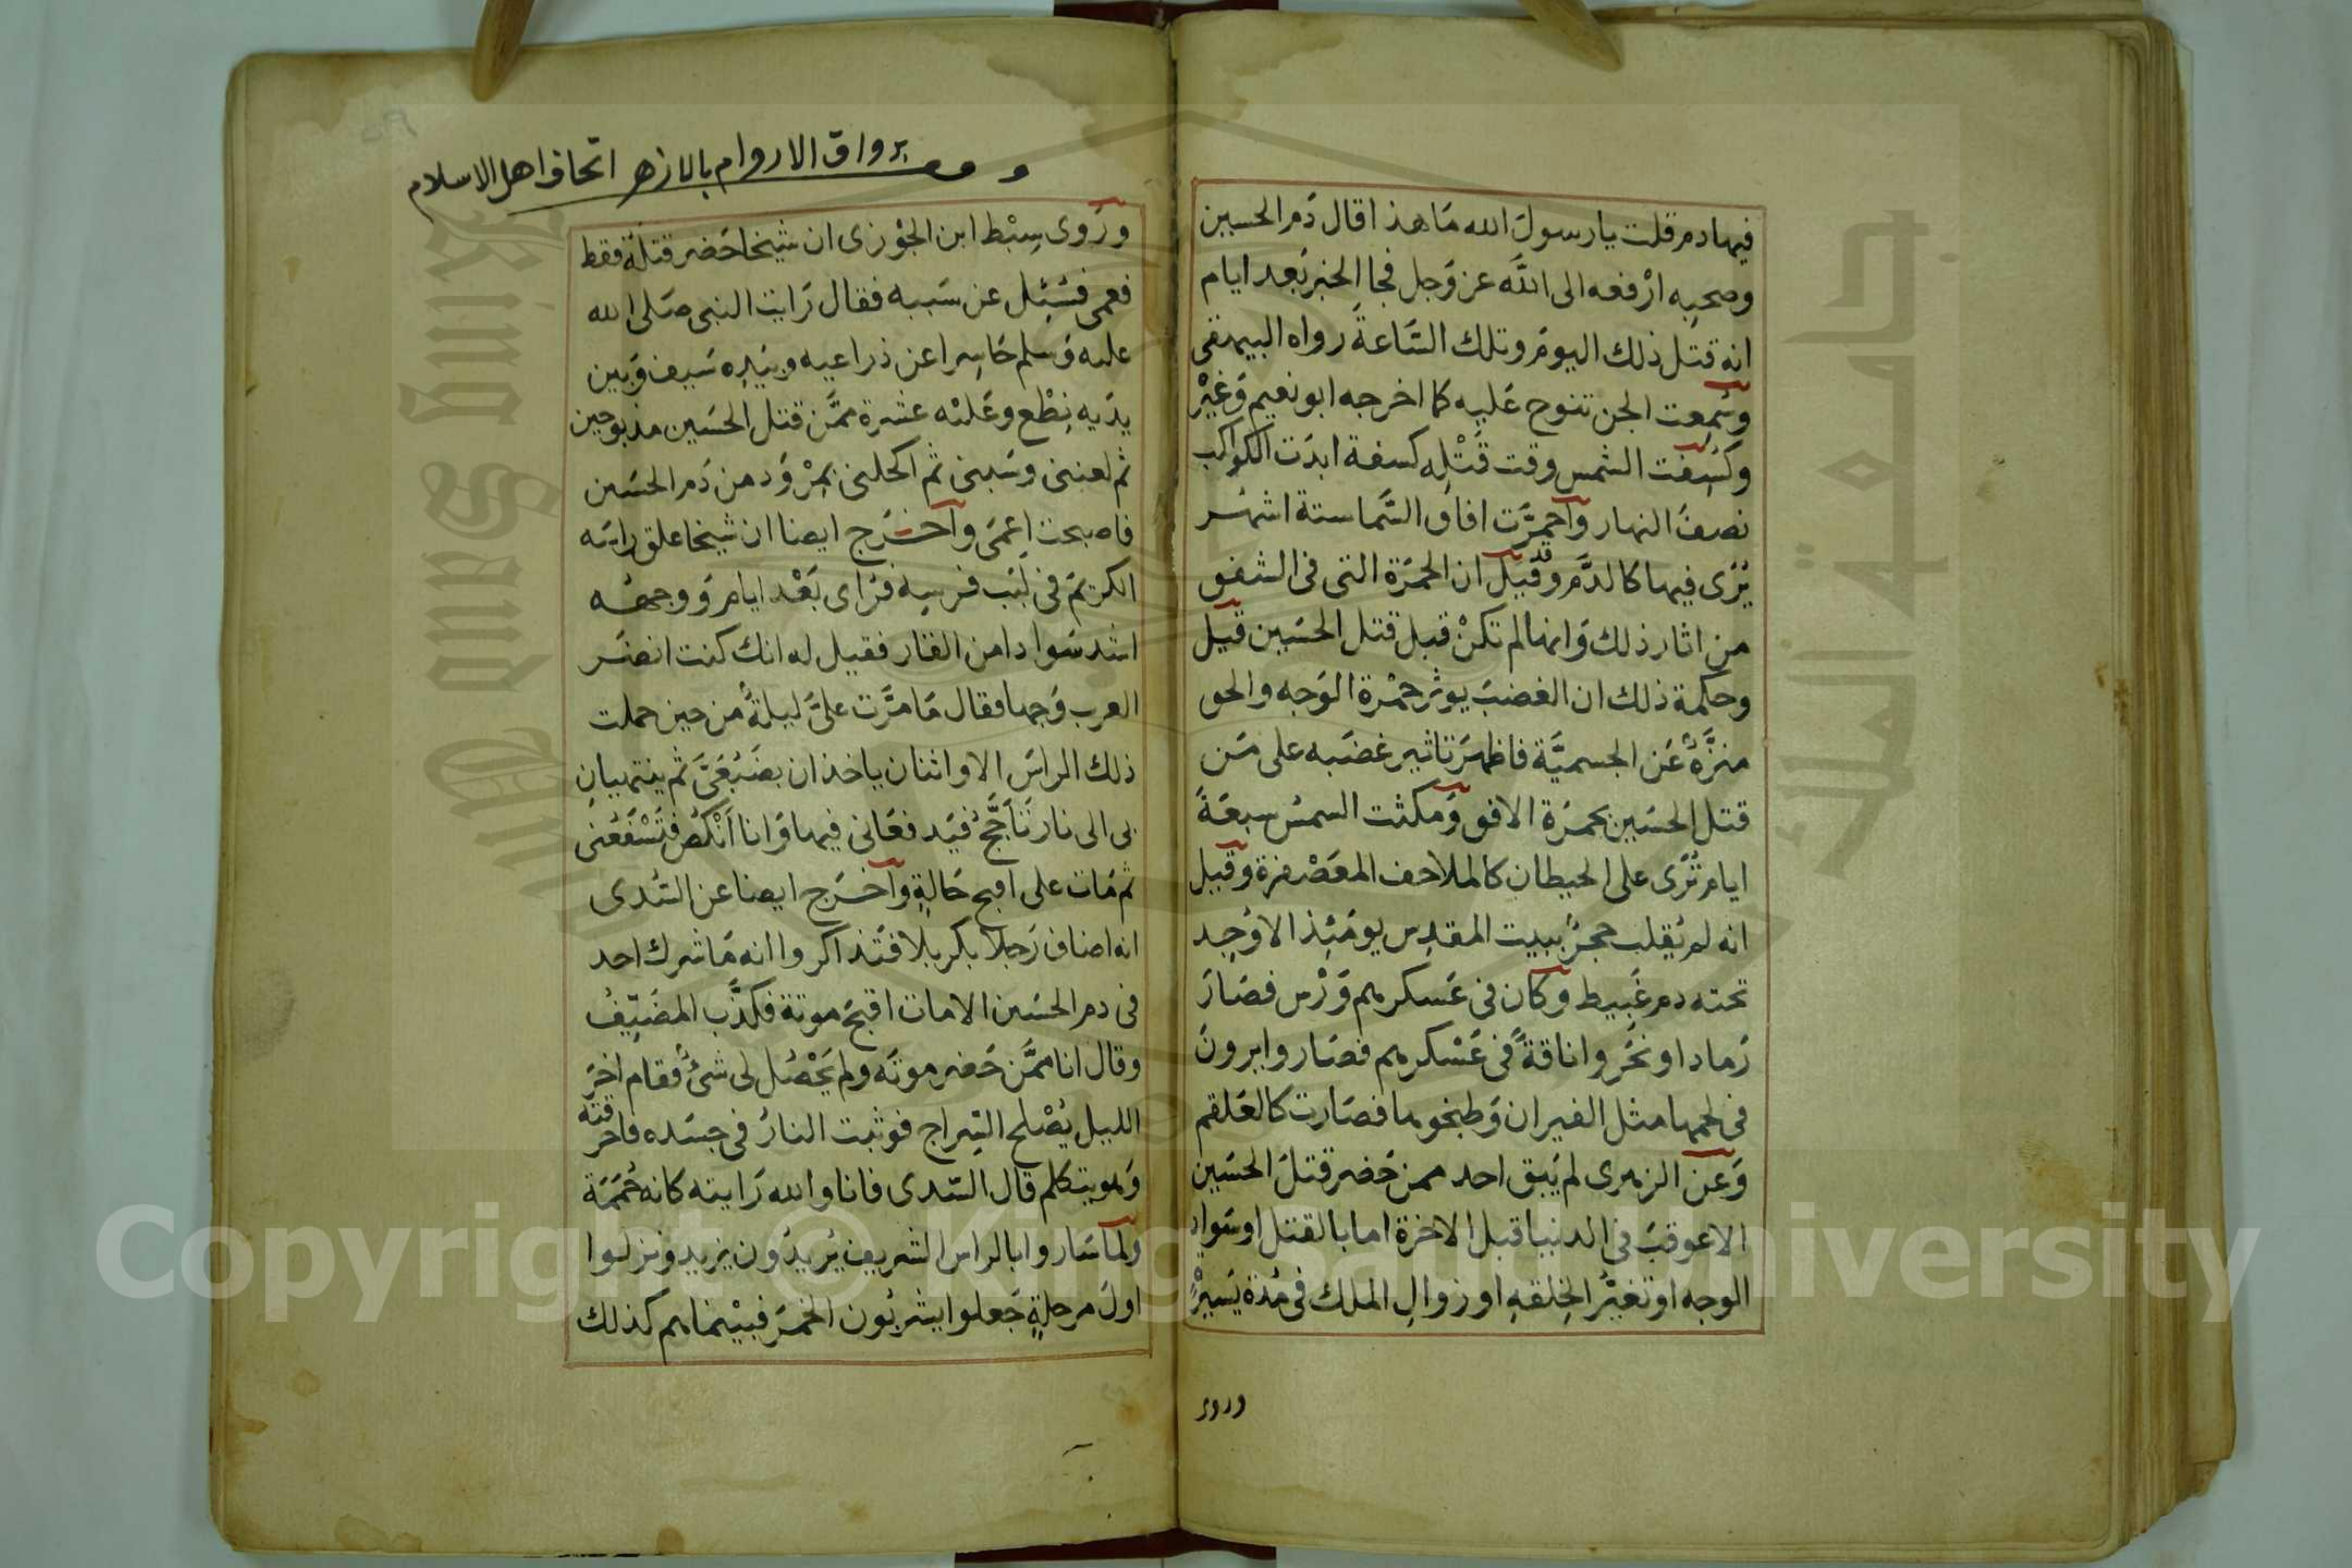 فيها دم قلت يا رسول الله مَا هذا قال دَم الحسين
وصحبه ارْفعه الى اللَّه عز وَجل فجا الخبر بَعد ايام
انه قتل ذلك اليوم وتلك السَّاعة رواه البيهقى
وسُمِعت الجن تنوح عَليه كما اخرجه ابو نعيم وَغيْر
وكسِفت الشمس وقت قَتْلِه كسفة ابدَت الكواكب
نصفَ النهار واحمرَّت افاق السَّما ستة اشهُر
يُرَى فيها كالدَّم وقد قيل ان الحمرَة التى فى الشفق
من اثار ذلك وَانها لم تكنْ قبل قتل الحسَين قيل
وحكمة ذلك ان الغضبَ يوثر حمْرة الوَجه والحق
منزَّهٌ عَن الجسميَّة فاظهرَ تاثير غضَبه على مَن
قتل الحسَين بحمرَة الافق وَمكثت السمسُ سبعَة
ايام تُرَى على الحيطان كالملاحف المعَصْفرة وقيل
انه لم يُقلب حجرٌ ببيت المقدِس يومَئِذ الا وُجِد
تحته دم عَبيط وكان فى عَسكرهم وَرْس فصَارَ
رَمادا ونحَروا ناقةً فى عَسْكرهم فصَاروا يرونَ
فى لحمها مثل الفيران وَطبخوها فصَارت كالعَلقم
وَعن الزهرى لم يَبق احد ممن حَضر قتلَ الحسَين
الا عوقبَ فى الدنيا قبل الاخرة اما بالقتل او سَواد
الوجه او تغيْر الخِلقهِ او زوالِ الملك فى مُدة يَسيرْ
وروى
برواق الاروام بالازهر اتحاف اهل الاسلام
ورَوى سِبْط ابن الجوْزى ان شيخا حَضر قتلَهُ فقط
فعمى فسُئِل عن سَببه فقال رَايت النبى صَلى الله
عليه وَسلم حَاسِرا عن ذراعيه وبيَدِه سَيف وَبين
يدَيه نِطْع وعَليْه عشرة ممَّن قتل الحسَين مذبوحين
ثم لعننى وسَبنى ثم اكحلنى بمِرْوَد من دَم الحسَين
فاصبحت اعمَى واخرَج ايضا ان شيخا علق راسَه
الكريم فى لبَب فرسِه فرَاى بَعْد ايام وَوجهُه
اشد سَوادا من القار فقيل له انك كنت انضَر
العرب وَجها فقال مَا مرَّت علىَّ ليلةُ من حين حملت
ذلك الراسَ الا واثنان ياخذان بضَبْعَىَّ ثم ينتهيانِ
بى الى نار تَأجَّجُ فيَدفعَانى فيها وَانا اَنْكُص فتَسْفَعُنى
ثم مَات على اقبح حَالةٍ واخرَج ايضا عن السُّدى
انه اضاف رَجلا بكربلا فتَذاكروا انه مَا شرك احد
فى دم الحسَين الا مات اقبحَ موتة فكذَّب المضَيِّفُ
وقال انا ممَّن حَضر موتَه ولم يَحْصُل لى شئُ فقام اخرَ
الليل يُصْلح السِّراج فوثبت النارُ فى جسَده فاحرقته
وَلم يتكلم قال السّدى فانا والله رَايته كانه حُمَمَة
ولما سَاروا بالراس الشريف يُريدُون يزيد وَنزلوا
اولَ مرحلةٍ جَعلوا يشربُون الخمرَ فبيْنما هم كذلك
Copyright © King Saud University
King Saud University
جامعة الملك سعود